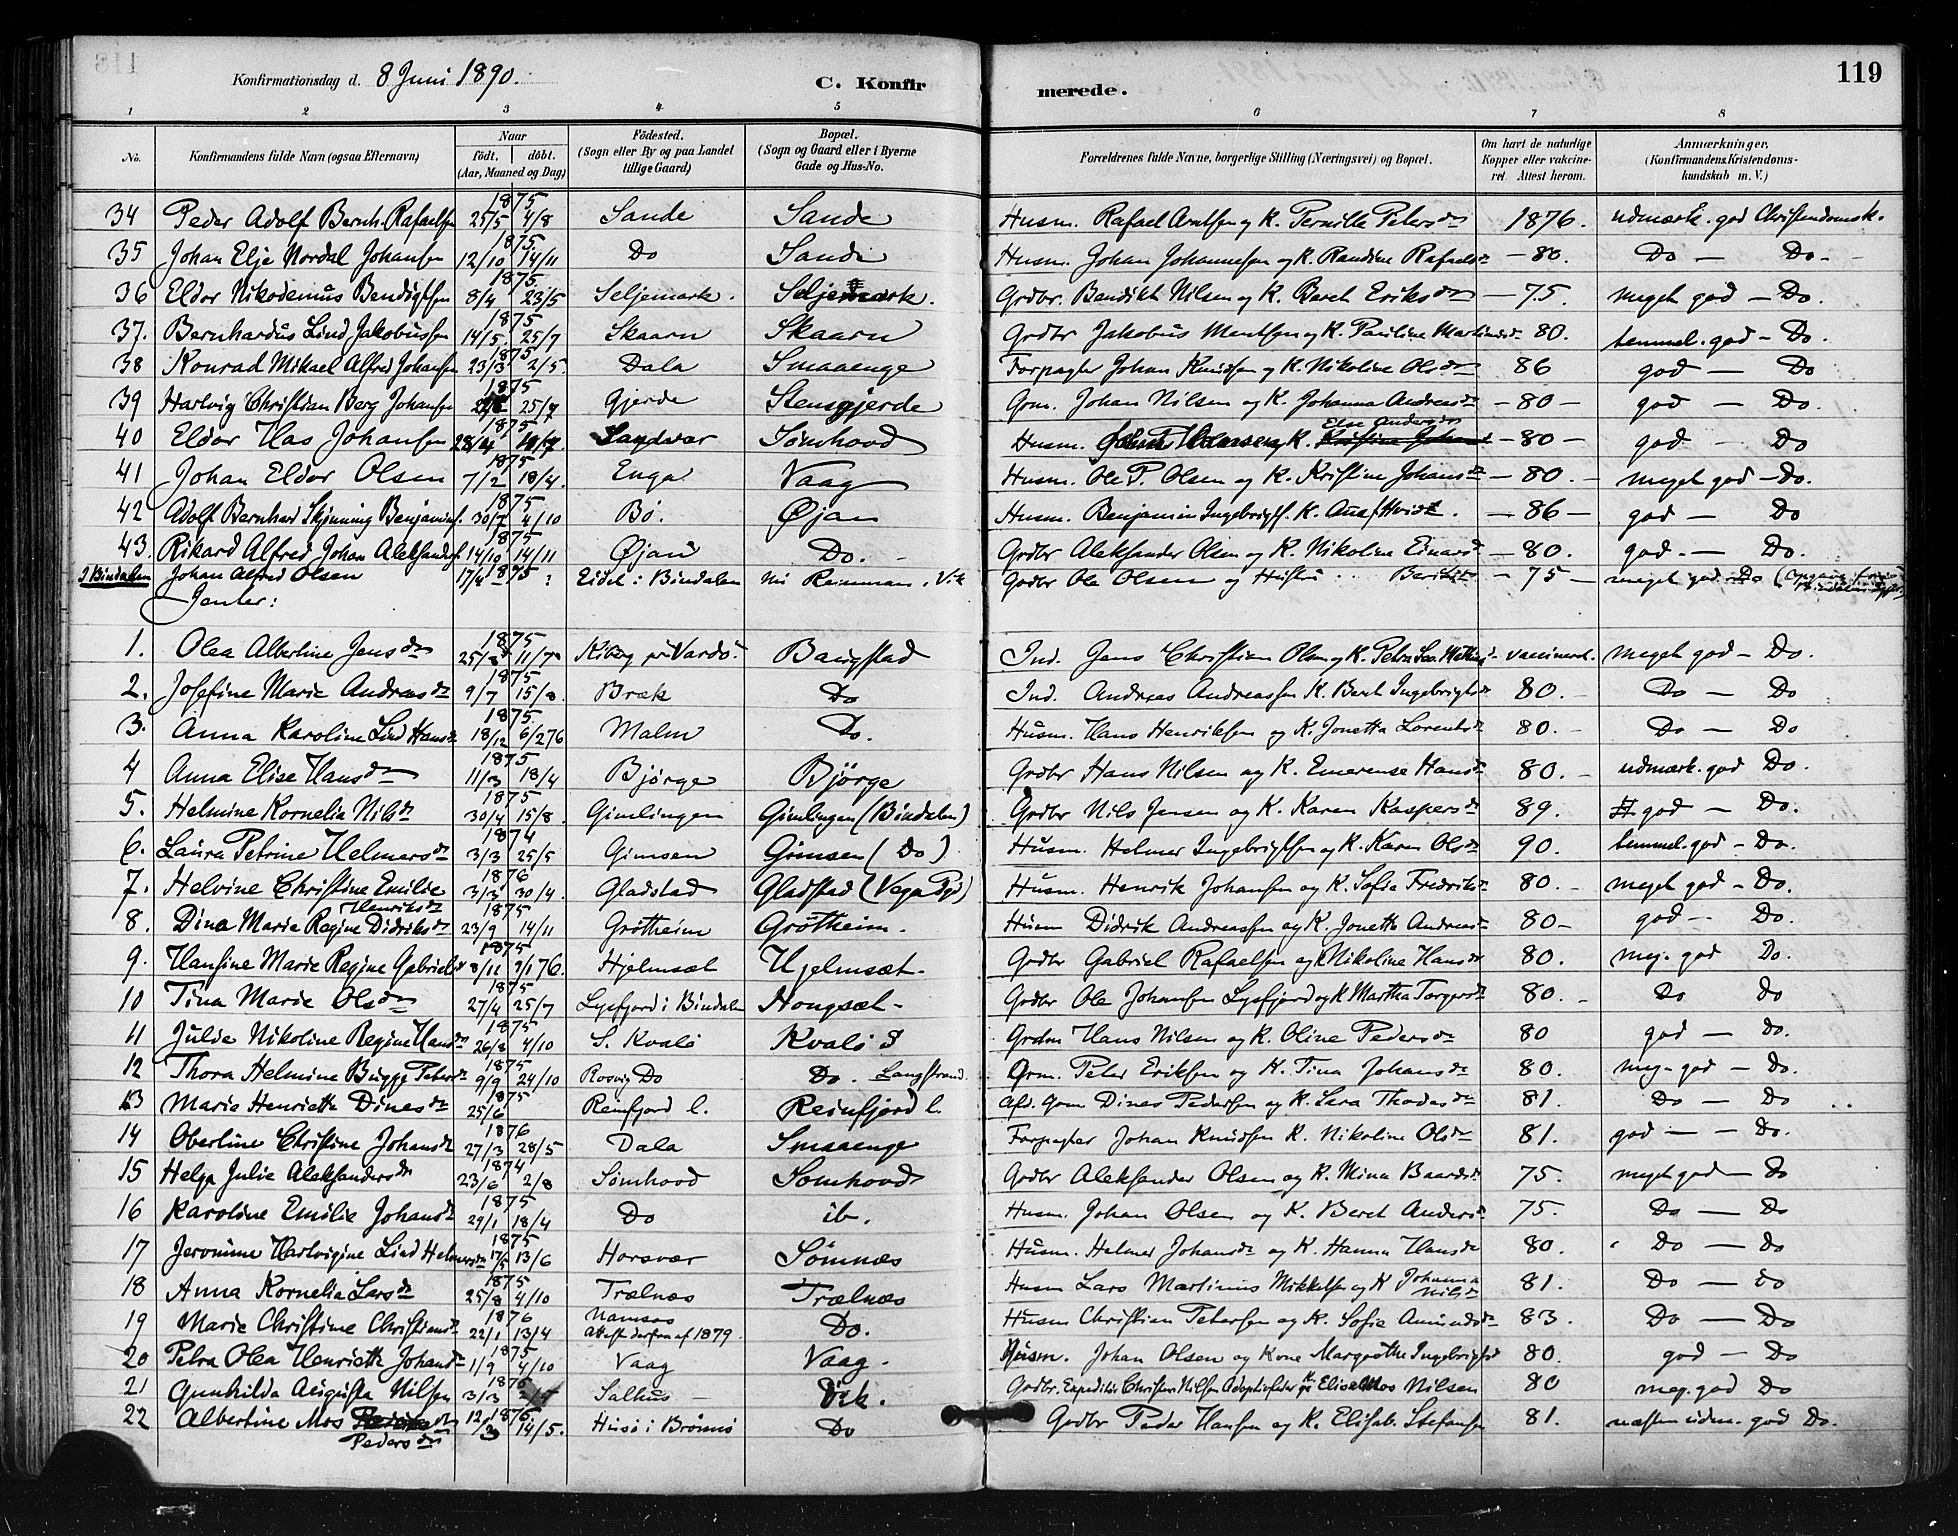 118
119
Konfirmationsdag d. 8 Juni 1890. C. Konfirmerede.
1 2 3 4 5 6 7 8
No. Konfirmandens fulde Navn (ogsaa Efternavn) Naar födt. döbt. (Aar, Maaned og Dag) Födested. (Sogn eller By og paa Landet tillige Gaard.) Bopæl. (Sogn og Gaard eller i Byerne Gade og Hus-No. Forældrenes fulde Navne, borgerlige Stilling (Næringsvei) og Bopæl. Om havt de naturlige Kopper eller vakcineret. Attest herom. Anmærkninger. (Konfirmandens Kristendomskundskab m. V.)
34 Peder Adolf Bernh. Rafaelsen 1875 25/5 4/8 Sande Sande Husm. Rafael Arntsen og K. Pernille Petersdr 1876. udmærk. god Christendomsk.
35 Johan Elje Nordal Johansen 1875. 12/10 14/11 Do Sande Husm. Johan Johannesen og K. Randine Rafaelsdr - 80. Do - Do -
36 Eldor Nikodemus Bendigtsen 1875. 8/4 23/5 Seljemark. Seljemark. Grdbr. Bendikt Nilsen og K. Beret Eriksdr - 75. meget god - Do.
37. Bernhardus Lind Jakobussen 1875 14/5. 25/7 Skaarn Skaarn Grdbr Jakobus Mentsen og K. Pauline Martinusdr 80. temmel. god - Do.
38 Konrad Mikael Alfred Johansen 1875 23/3 2/5. Dala Smaaenge Forpagter Johan Knudsen og K. Nikoline Olsdr 86 god - Do
39 Hartvig Christian Berg Johansen 1875 25/7 Gjerde Stensgjerde Grm. Johan Nilsen og K. Johanna Andreasdr - 80 - god - Do.
40 Eldor Has Johansen 1875 28/4 Sandvær Sømhovd Husm. K. Else Andersdr - 80 - god - Do
41 Johan Eldor Olsen 1875 7/2 18/4. Enga Vaag Husm. Ole P. Olsen og K. Kristine Johansdr - 80. - meget god - Do.
42 Adolf Bernhard Skjenning Benjaminsen 1875 30/7 4/10 Bø. Øjan Husm. Benjamin Ingebrigts. K. - 86 - god - Do
43. Rikard Alfred Johan Aleksanders. 1875 14/10 14/11 Øjan Do. - Grdbr Aleksander Olsen og K. Nikoline Einarsd - 80. god. - Do.
I Bindalen Johan Alfred Olsen 17/4 1875 : Eidet i Bindalen nu Rammam. Vik Grdbr Ole Olsen og Hustru Beritsdr - 75 - meget god Do
Jenter:
1. Olea Albertine Jensdr 1875 25/3 11/7 Kiberg pr Vardö. Bangstad Ind. Jens Christian Olsen og K. Petra vaccineret. meget god - Do.
2. Josefine Marie Andreasdr 1875 9/7 15/8. Bræk Do Ind. Andreas Andreassen K. Beret Ingebrigtsdr 80. - Do - Do
3. Anna Karoline Lind Hansdr 1875 18/12 6/2 76 Malm Do. Husm. Hans Henriksen og K. Jonetta Lorentsdr 80. - Do - Do
4 Anna Elise Hansdr 1875 11/3 18/4 Bjørge Bjørge Grdbr Hans Nilsen og K. Emerense Hansdr 80. - udmærk. god Do.
5. Helmine Kornelia Nilsdr 1875 30/4 15/8. Gimlingen Gimlingen (Bindalen) Grdbr Nils Jensen og K. Karen Kaspersdr 89. god - Do.
6. Laura Petrine Helmersdr 1874 3/3 25/5 Gimsen Gimsen (Do) Husm. Helmer Ingebrigtsen og K. Karen Olsdr 90. temmel. god - Do.
7. Helvine Christine Emilie Henriksdr 1876 3/3 30/4. Gladstad Gladstad (Vega Pgd) Husm. Henrik Johansen og K. Sofia Fredriksdr 80. - meget god - Do.
8. Dina Marie Regine Didriksdr 1875 23/9 14/11 Grötheim Grötheim. Husm Didrik Andreassen og K. Jonetta Andreasdr 80 - god - Do.
9. Hansine Marie Regine Gabrielsd 1875 8/11 9/1 76. Hjelmsæt Hjelmsæt. Grdbr Gabriel Rafaelsen og K. Nikoline Hansdr 80. meg. god Do.
10 Tina Marie Olsdr 1875 27/4 25/7 Lysfjord i Bindalen Hongsæt - Grdbr Ole Johansen Lysfjord og K Martha Torgersdr 80. - Do Do
11 Julie Nikoline Regine Hansdr 1875 26/8 4/10 S. Kvalö Kvalö S Grdm Hans Nilsen og K. Oline Pedersdr 80 god - Do.
12 Thora Helmine Bugge Petersdr 1875 9/9 24/10 Rosvig Do Do. Langstrand. Grm. Peter Eriksen og K. Tina Johansdr 80. meg. god - Do.
13 Marie Henriette Dinesdr 1875 25/6 Reinfjord l. Reinfjord l. afd. Grm Dines Pedersen og K. Sara Thodesdr 81. Do - Do
14 Oberline Christine Johansdr 1876 27/3 28/5 Dala Smaaenge Forpagter Johan Knudsen K. Nikoline Olsdr 81. god - Do.
15 Helga Julie Aleksandersdr 1874 23/6 2/8 Sømhovd Somhovd Grdbr Aleksander Olsen og K. Mina Baardsdr 75. meget god - Do
16 Karoline Emilie Johansdr 1875 29/1 18/4 Do ib. Husm. Johan Olsen og K. Beret Andersdr 75. Do - Do
17 Jeronime Hartvigine Lind Helmersdr 1875 17/5 13/6 Horsvær Sömnæs Husm. Helmer Johansdr og K. Hanna Hansdr 80. Do - Do
18 Anna Kornelia Larsdr 1875 25/8 4/10 Trælnæs Trælnæs Husm Lars Martinus Mikkelsen og K Johanna Nilsdr 81. Do - Do
19 Marie Christine Christiansdr 1876 22/1 13/4 Namsos Attest derfra af 1879. Do. Husm Christian Petersen og K. Sofie Amundsdr 83. Do - Do
20 Petra Olea Henriette Johansdr 1875 1/9 4/10 Vaag Vaag. Husm. Johan Olsen og Kone Margrethe Ingebrigtsd 80. god - Do
21 Gunhilda Augusta Nilsen 1876 3/3 Salhus - Vik. Grdbr. Expeditör Christen Nilsen Adoptivfader og K. Elise Mos Nilsen 80 meg. god Do
22 Albertine Mos Pedersdr 1876 12/3 14/5. Husö i Brönnö Do Grdbr Peder Hansen og K. Elisab. Stefansen 81. næsten udm. god Do.